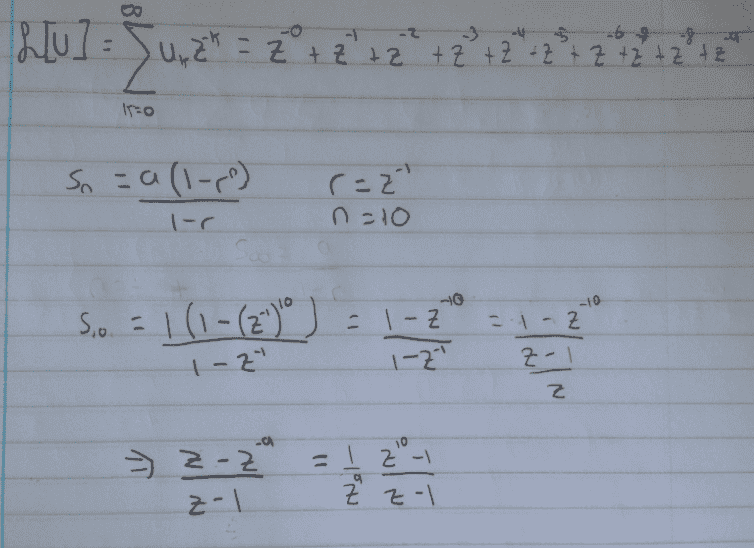 ∞
L[U] = ∑ uₖz⁻ᵏ = z⁻⁰ + z⁻¹ + z⁻² + z⁻³ + z⁻⁴ + z⁻⁵ + z⁻⁶ + z⁻⁷ + z⁻⁸ + z⁻⁹
k=0
Sₙ = a(1-rⁿ) / 1-r r = z⁻¹
n = 10
S₁₀ = 1(1-(z⁻¹)¹⁰) / 1-z⁻¹ = 1-z⁻¹⁰ / 1-z⁻¹ = 1-z⁻¹⁰ / ((z-1)/z)
⇒ z-z⁻⁹ / z-1 = 1/z⁹ z¹⁰-1 / z-1